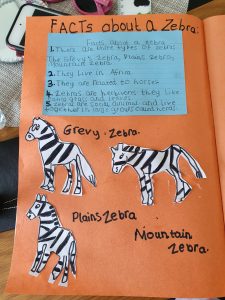 FACTS about a Zebra:
Facts about a zebra
1. There are three types of zebra;
The Grevy's Zebra, Plains Zebra,
Mountain Zebra.
2. They Live in Africa
3. They are related to horses
4. Zebras are herbivores they like
eating grass and leaves.
5. Zebra are social animal and live
together in large groups called herds.
Grevy. Zebra.
Plains Zebra
Mountain
Zebra.